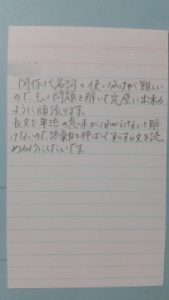 関係代名詞の使い分けが難しい
ので、もっと問題を解いて完璧に出来る
ように頑張ります。
長文も単語の意味が分からないと解
けないので、語彙力を伸ばしてすらすら文を読
めるようにしたいです。